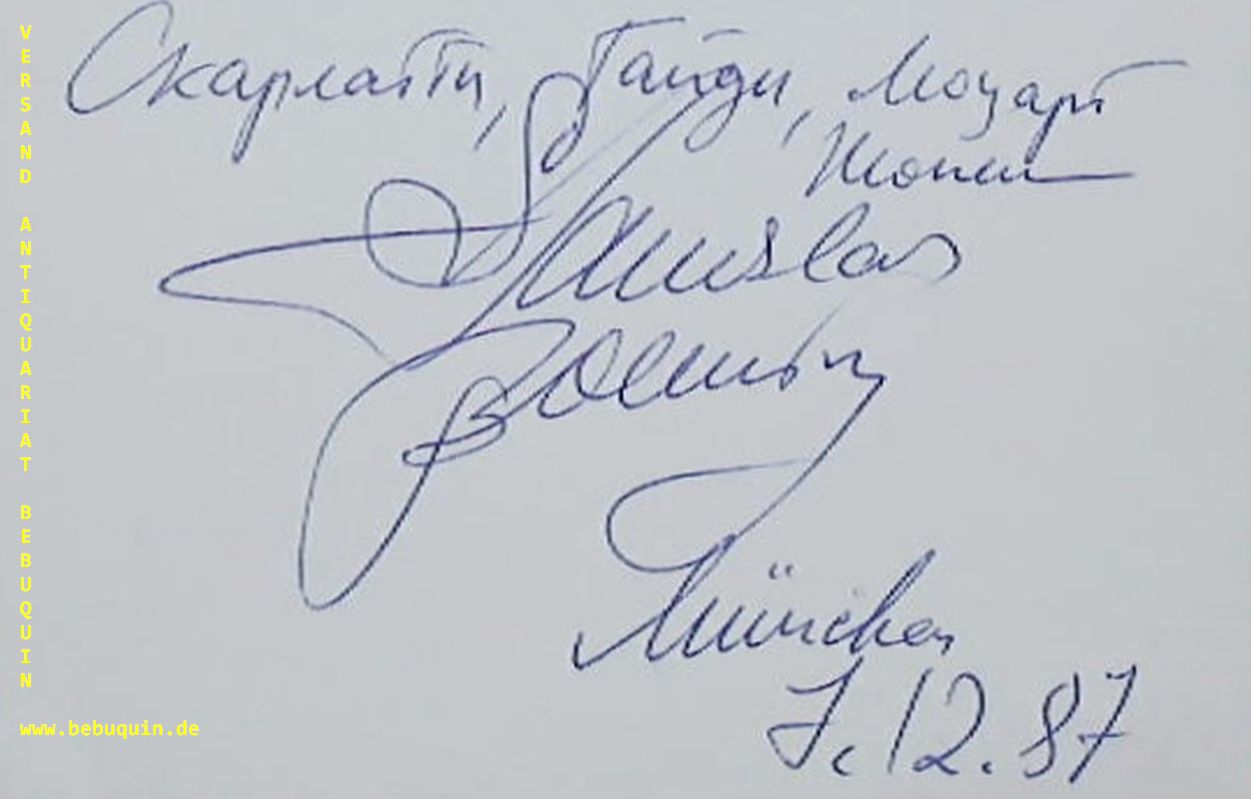 Скарлатти, Гайдн, Моцарт
Шопен
Stanislav
Bunin
München
7.12.87
VERSAND ANTIQUARIAT BEBUQUIN
www.bebuquin.de